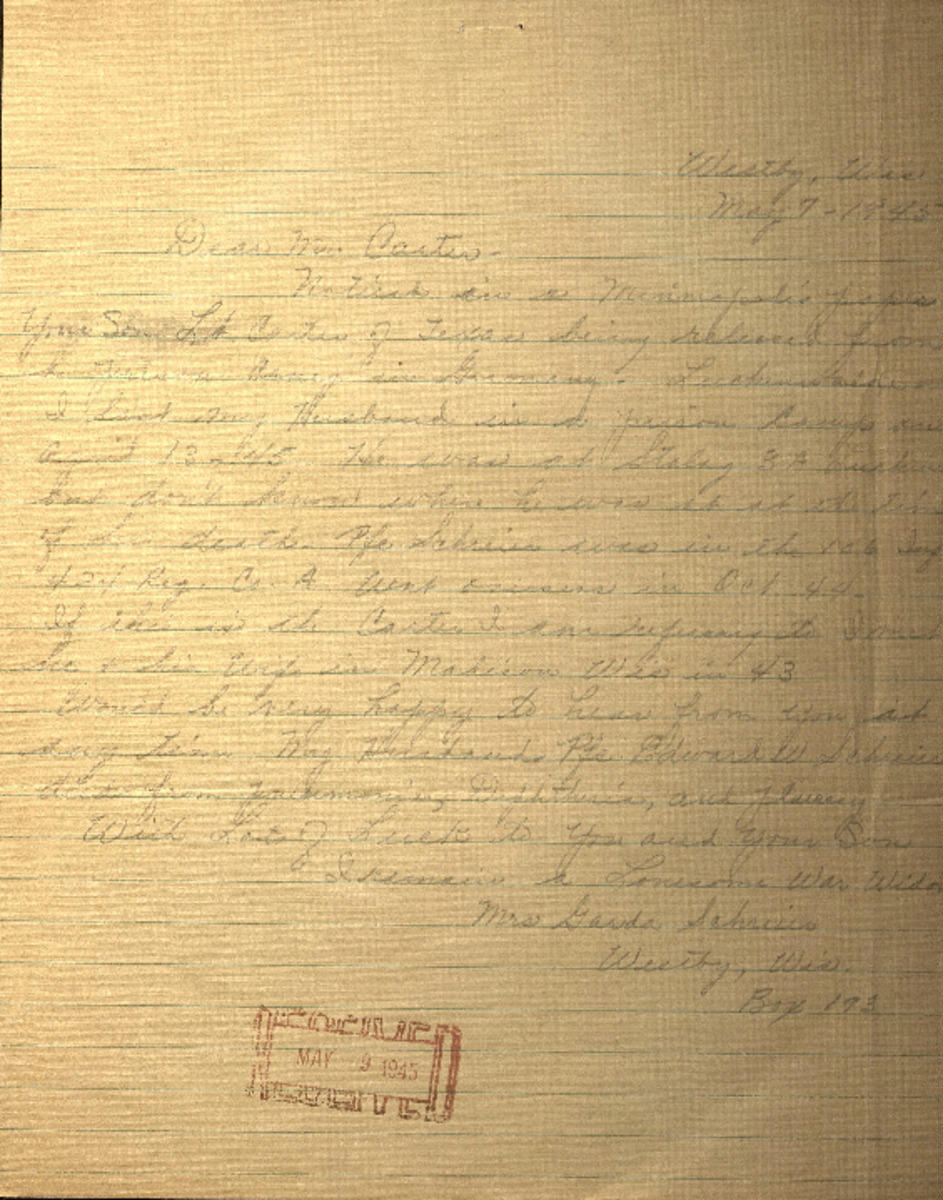 Westby, Wis
May 7-1945
Dear Mr. Carter-
in a Minneapolis paper
Your Son Lt Carter of Texas being released from
a Prison Camp in Germany.
I lost my Husband in a prison Camp on
April 13-45 He was at Stalag 3A
but don't know where he was at at the time
of his death. Pfc Schreier was in the 106 Inf
424 Reg. Co. A Went overseas in Oct 44.
If this is the Carter I am refering to I met
he & his Wife in Madison Wis in 43
Would be very happy to hear from you at
any time My Husband Pfc Edward W Schreier
died from pneumonia, Diphtheria, and
With Lots of Luck to You and Your Son
I remain a Lonesome War Widow
Mrs Schreier
Westby, Wis.
Box 193
MAY 9 1945